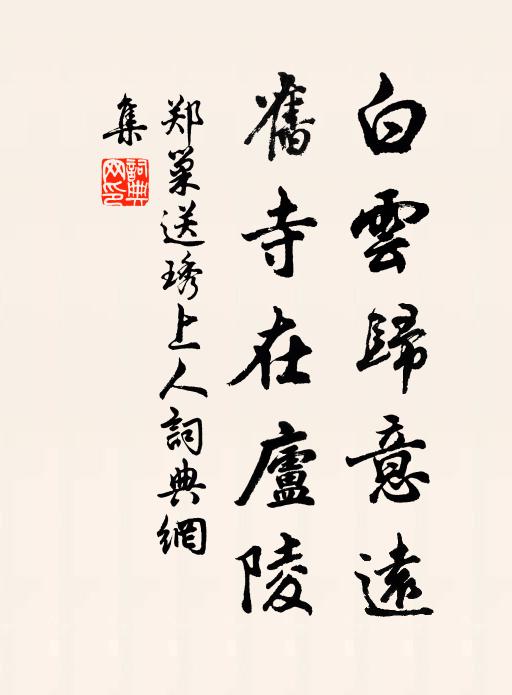 白雲歸意遠
舊寺在廬陵
郑巢送琇上人詞典網
集
詞典網印